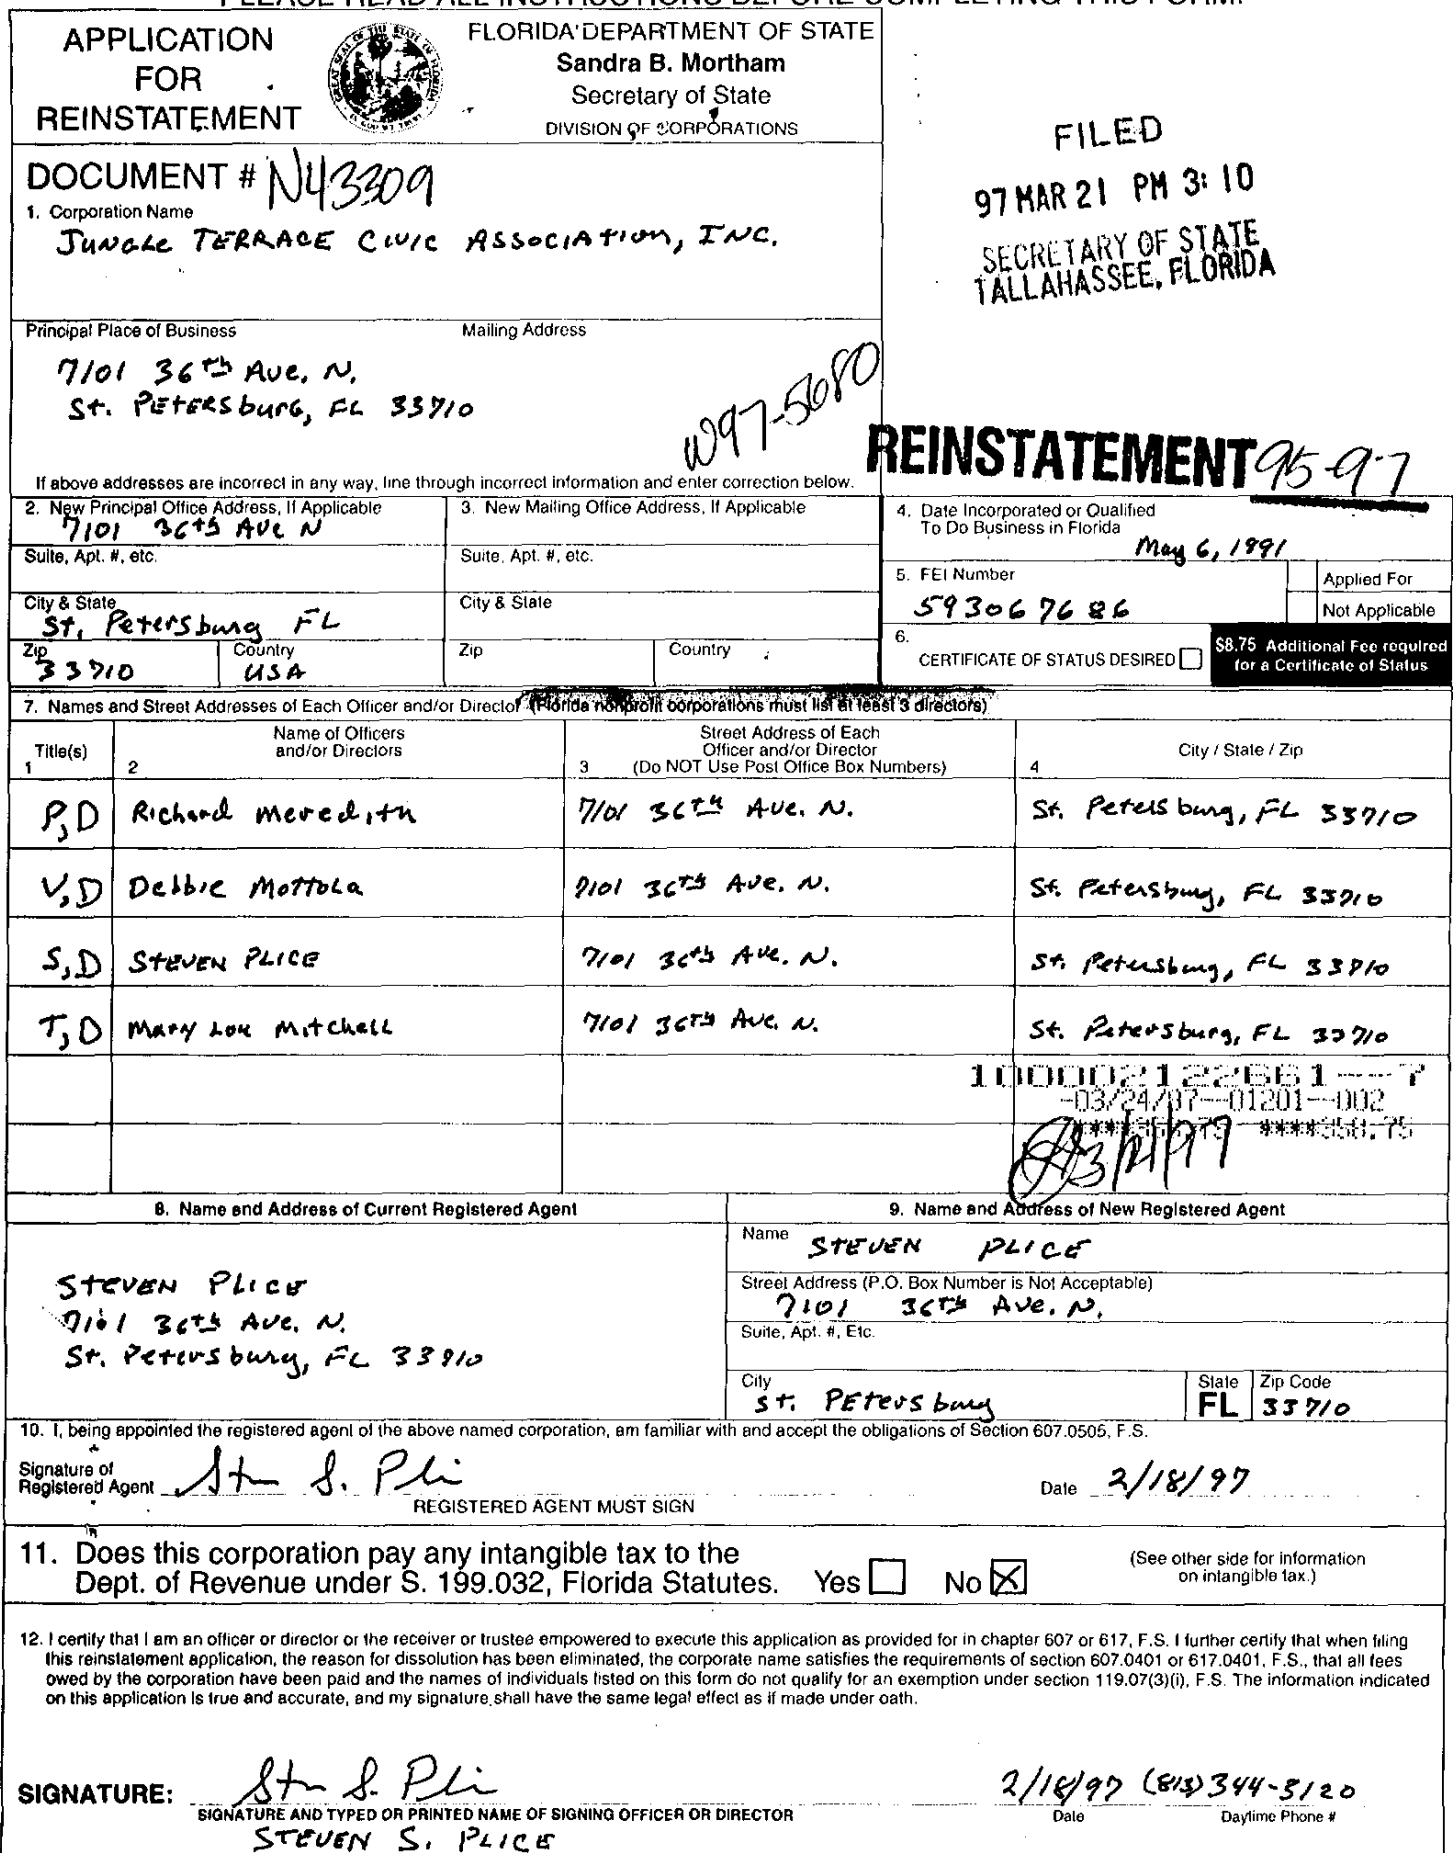 PLEASE READ ALL INSTRUCTIONS BEFORE COMPLETING THIS FORM.
APPLICATION
FOR
REINSTATEMENT
FLORIDA DEPARTMENT OF STATE
Sandra B. Mortham
Secretary of State
DIVISION OF CORPORATIONS
FILED
97 MAR 21 PM 3:10
SECRETARY OF STATE
TALLAHASSEE, FLORIDA
DOCUMENT # N43309
1. Corporation Name
JUNGLE TERRACE CIVIC ASSOCIATION, INC.
Principal Place of Business Mailing Address
7101 36th Ave. N.
St. Petersburg, FL 33710
W97-5680
REINSTATEMENT 95-97
If above addresses are incorrect in any way, line through incorrect information and enter correction below.
2. New Principal Office Address, If Applicable
7101 36th Ave N
3. New Mailing Office Address, If Applicable
4. Date Incorporated or Qualified
To Do Business in Florida
May 6, 1991
Suite, Apt. #, etc.
Suite, Apt. #, etc.
5. FEI Number
593067686
Applied For
Not Applicable
City & State
St. Petersburg FL
City & State
Zip
33710
Country
USA
Zip
Country
6.
CERTIFICATE OF STATUS DESIRED
$8.75 Additional Fee required
for a Certificate of Status
7. Names and Street Addresses of Each Officer and/or Director (Florida nonprofit corporations must list at least 3 directors)
Title(s)
1
Name of Officers
and/or Directors
2
Street Address of Each
Officer and/or Director
3 (Do NOT Use Post Office Box Numbers)
City / State / Zip
4
P,D Richard Meredith 7101 36th Ave. N. St. Petersburg, FL 33710
V,D Debbie Mottola 7101 36th Ave. N. St. Petersburg, FL 33710
S,D STEVEN PLICE 7101 36th Ave. N. St. Petersburg, FL 33710
T,D Mary Lou Mitchell 7101 36th Ave. N. St. Petersburg, FL 33710
100002122661--7
-03/24/97--01201--002
****358.75 ****358.75
8. Name and Address of Current Registered Agent
STEVEN PLICE
7101 36th Ave. N.
St. Petersburg, FL 33710
9. Name and Address of New Registered Agent
Name STEVEN PLICE
Street Address (P.O. Box Number is Not Acceptable)
7101 36th Ave. N.
Suite, Apt. #, Etc.
City
St. Petersburg
State
FL
Zip Code
33710
10. I, being appointed the registered agent of the above named corporation, am familiar with and accept the obligations of Section 607.0505, F.S.
Signature of
Registered Agent
Date 2/18/97
REGISTERED AGENT MUST SIGN
11. Does this corporation pay any intangible tax to the
Dept. of Revenue under S. 199.032, Florida Statutes. Yes No
(See other side for information
on intangible tax.)
12. I certify that I am an officer or director or the receiver or trustee empowered to execute this application as provided for in chapter 607 or 617, F.S. I further certify that when filing
this reinstatement application, the reason for dissolution has been eliminated, the corporate name satisfies the requirements of section 607.0401 or 617.0401, F.S., that all fees
owed by the corporation have been paid and the names of individuals listed on this form do not qualify for an exemption under section 119.07(3)(i), F.S. The information indicated
on this application is true and accurate, and my signature shall have the same legal effect as if made under oath.
SIGNATURE:
2/18/97 (813) 344-5120
SIGNATURE AND TYPED OR PRINTED NAME OF SIGNING OFFICER OR DIRECTOR
Date Daytime Phone #
STEVEN S. PLICE